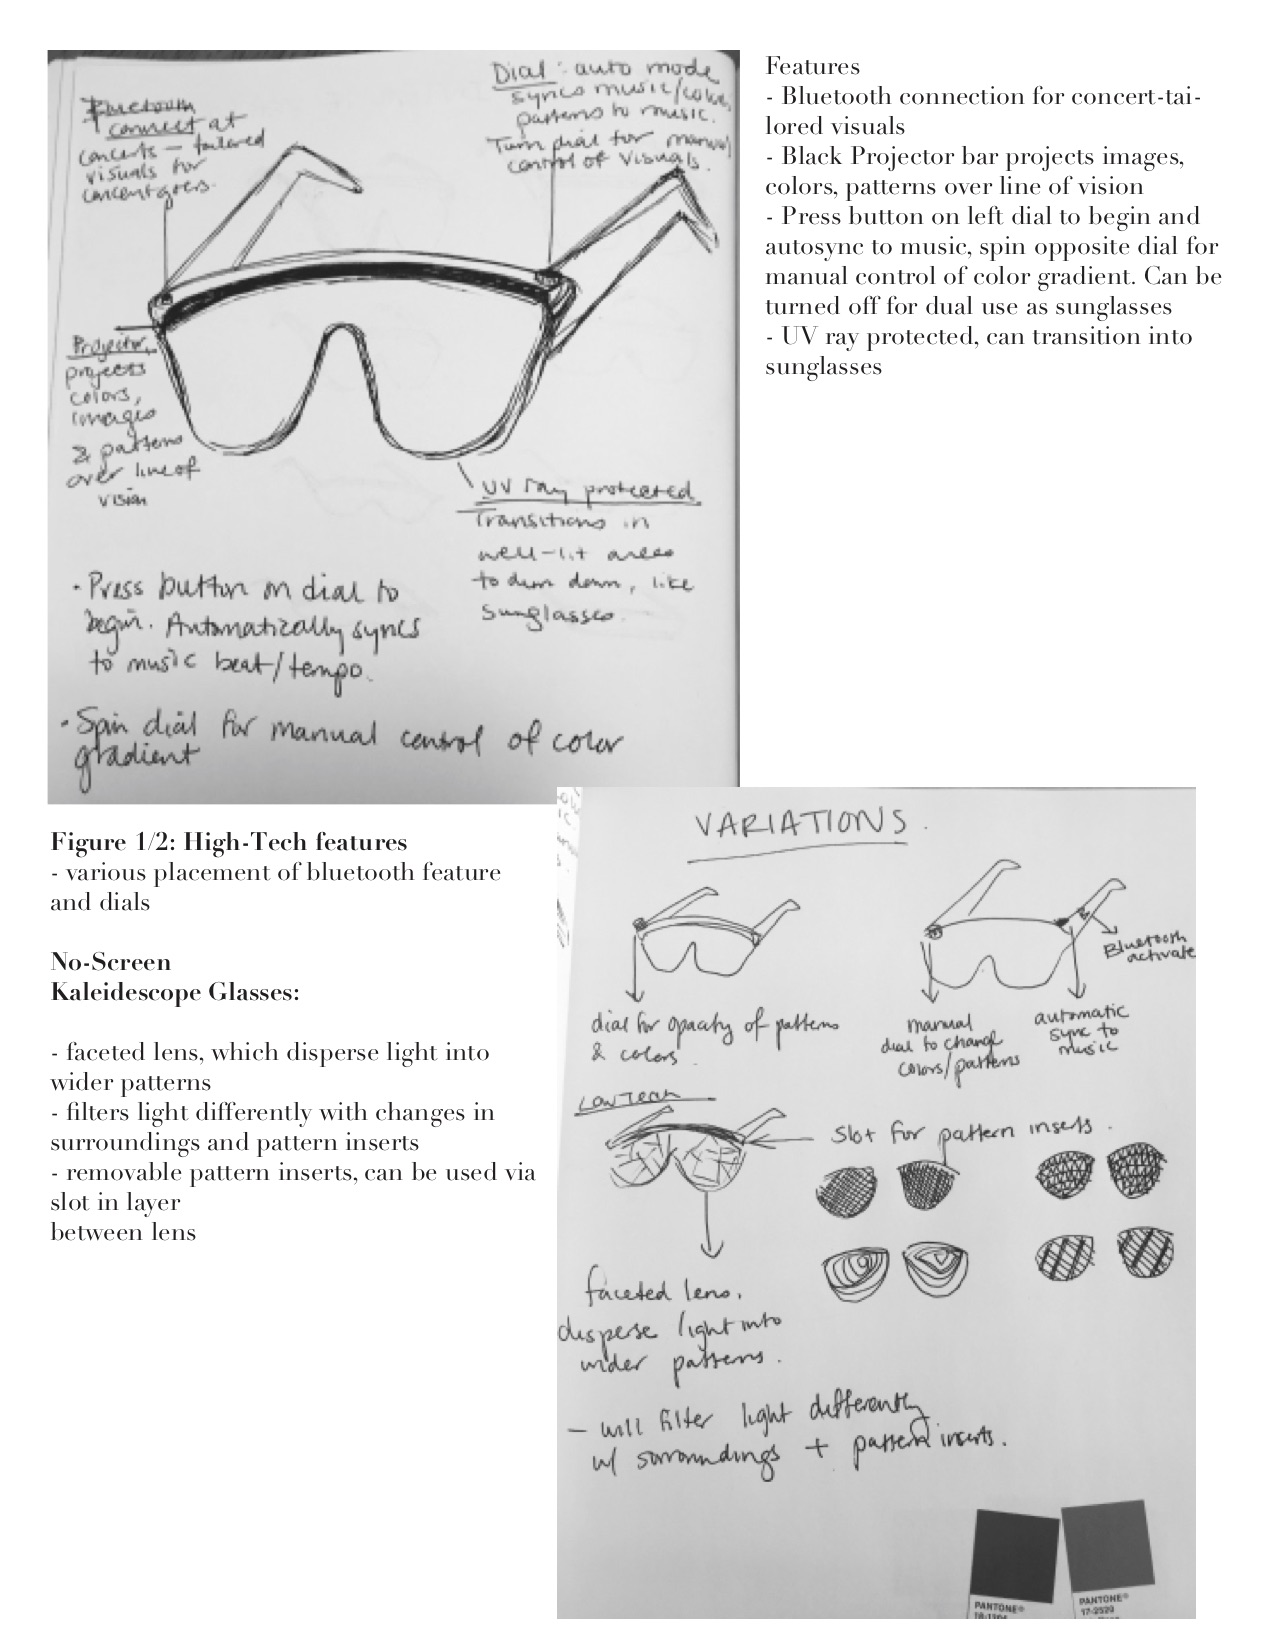 Bluetooth
connect at
concerts — tailored
visuals for
concertgoers.
Dial: auto mode
syncs music/color,
patterns to music.
Turn dial for manual
control of visuals.
Projector,
projects
colors,
images
& patterns
over line of
vision
UV ray protected
Transitions in
well-lit areas
to dim down, like
sunglasses.
· Press button on dial to
begin. Automatically syncs
to music beat/tempo.
· Spin dial for manual control of color
gradient
Features
- Bluetooth connection for concert-tai-
lored visuals
- Black Projector bar projects images,
colors, patterns over line of vision
- Press button on left dial to begin and
autosync to music, spin opposite dial for
manual control of color gradient. Can be
turned off for dual use as sunglasses
- UV ray protected, can transition into
sunglasses
Figure 1/2: High-Tech features
- various placement of bluetooth feature
and dials
No-Screen
Kaleidescope Glasses:
- faceted lens, which disperse light into
wider patterns
- filters light differently with changes in
surroundings and pattern inserts
- removable pattern inserts, can be used via
slot in layer
between lens
VARIATIONS.
dial for opacity of patterns
& colors.
manual
dial to change
colors/patterns
automatic
sync to
music
Bluetooth
activate
Low Tech
slot for pattern inserts.
faceted lens.
disperse light into
wider patterns.
— will filter light differently
w/ surroundings + pattern inserts.
PANTONE®
PANTONE®
17-2520